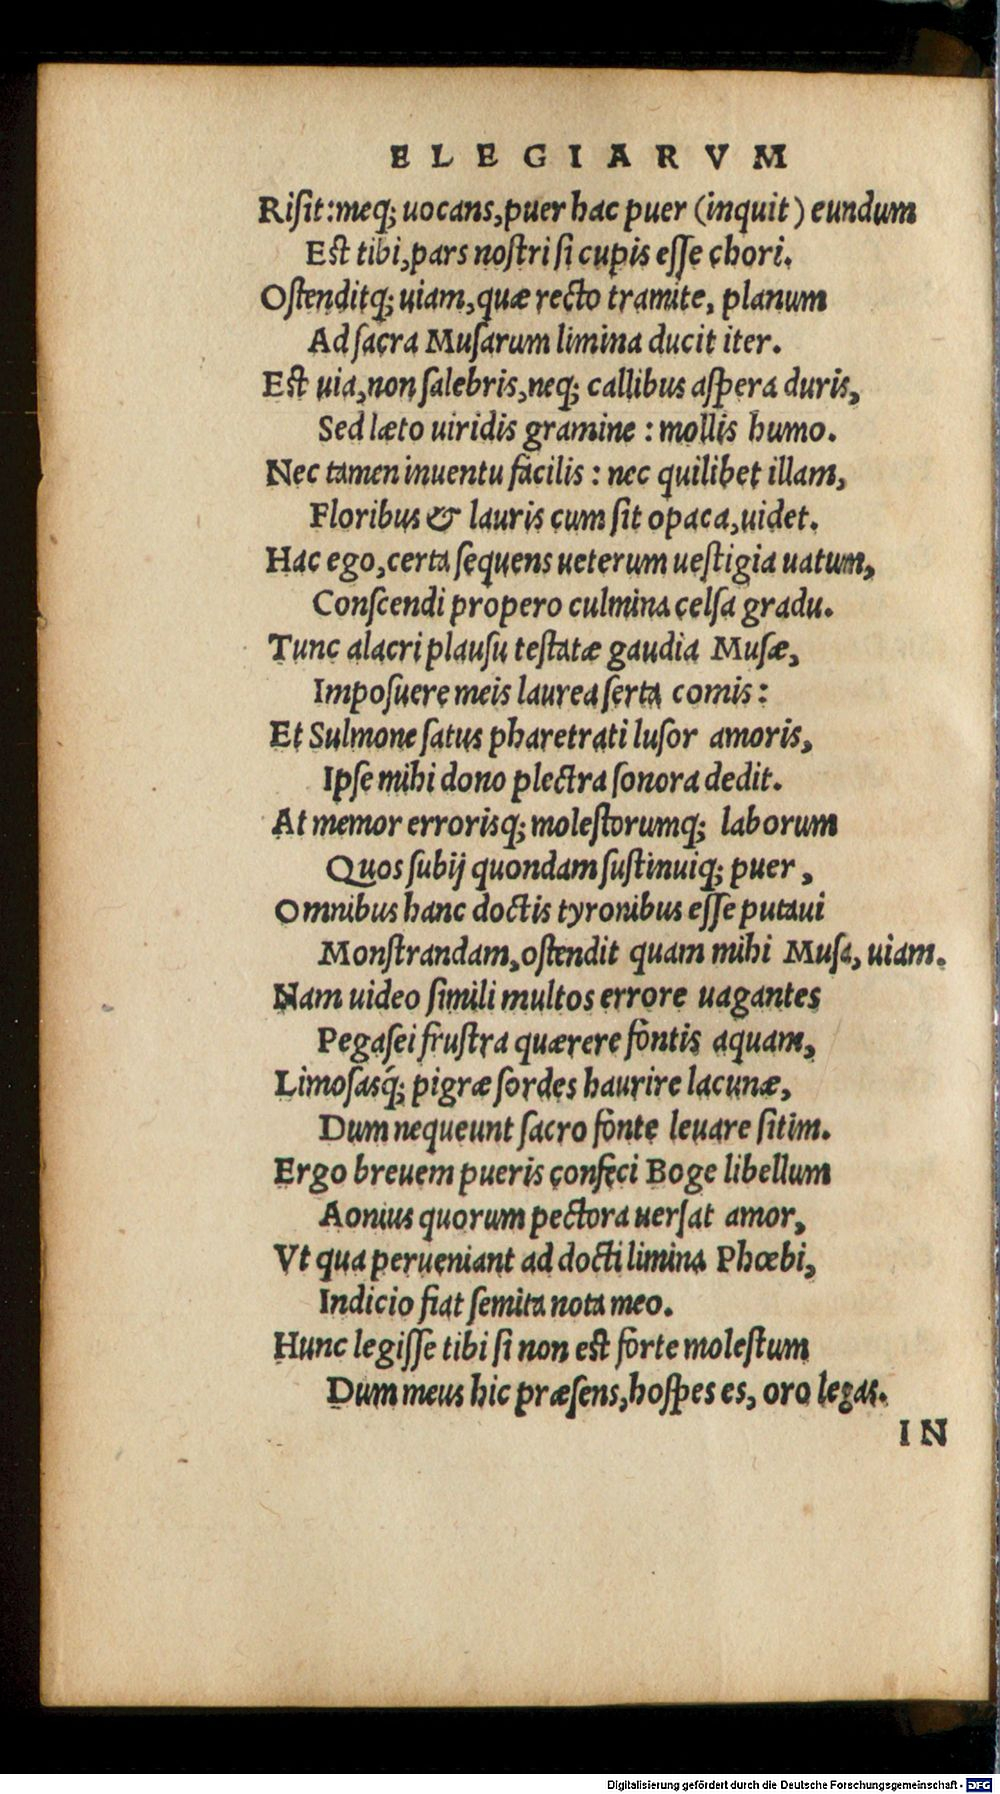 ELEGIARVM
Riſit:meq; uocans,puer hac puer (inquit) eundum
Eſt tibi,pars noſtri ſi cupis eſſe chori.
Oſtenditq; uiam,quæ recto tramite, planum
Ad ſacra Muſarum limina ducit iter.
Eſt uia,non ſalebris,neq; callibus aſpera duris,
Sed læto uiridis gramine : mollis humo.
Nec tamen inuentu facilis : nec quilibet illam,
Floribus & lauris cum ſit opaca,uidet.
Hac ego,certa ſequens ueterum ueſtigia uatum,
Conſcendi propero culmina celſa gradu.
Tunc alacri plauſu teſtatæ gaudia Muſæ,
Impoſuere meis laurea ſerta comis:
Et Sulmone ſatus pharetrati luſor amoris,
Ipſe mihi dono plectra ſonora dedit.
At memor errorisq; moleſtorumq; laborum
Quos ſubij quondam ſuſtinuiq; puer,
Omnibus hanc doctis tyronibus eſſe putaui
Monſtrandam,oſtendit quam mihi Muſa, uiam.
Nam uideo ſimili multos errore uagantes
Pegaſei fruſtra quærere fontis aquam,
Limoſasq́; pigræ ſordes haurire lacunæ,
Dum nequeunt ſacro fonte leuare ſitim.
Ergo breuem pueris confeci Boge libellum
Aonius quorum pectora uerſat amor,
Vt qua perueniant ad docti limina Phœbi,
Indicio fiat ſemita nota meo.
Hunc legiſſe tibi ſi non eſt forte moleſtum
Dum meus hic præſens,hoſpes es, oro legas.
IN
Digitalisierung gefördert durch die Deutsche Forschungsgemeinschaft - DFG